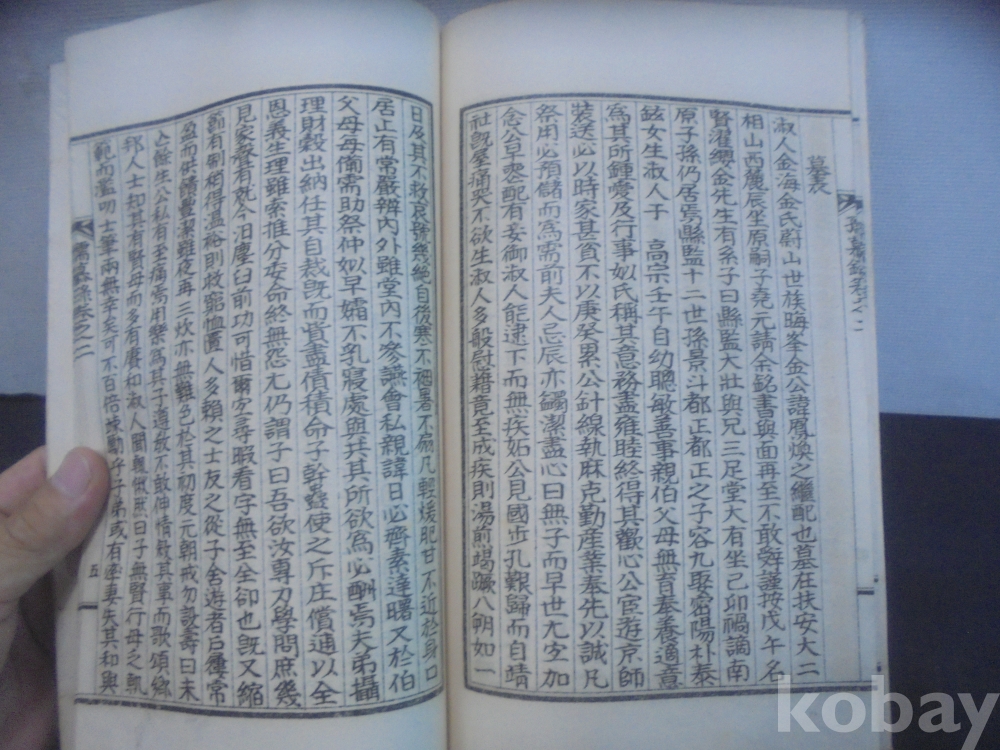 墓表
淑人金海金氏蔚山世族晦峯金公諱鳳煥之繼配也墓在扶安大二
相山西麓辰坐原嗣子堯元請余銘書與面再至不敢辭謹按戊午名
賢濯纓金先生有系子曰縣監大壯與兄三足堂大有坐己卯禍謫南
原子孫仍居焉縣監十二世孫景斗都正都正之子容九娶密陽朴泰
鉉女生淑人于 高宗壬午自幼聰敏善事親伯父母無育奉養適意
爲其所鍾愛及行事如氏稱其意務盡維睦終得其歡心公宦遊京師
裝送必以時家甚貧不以庚癸累公針線執麻克勤產業奉先以誠凡
祭用必預儲而爲需前夫人忌辰亦蠲潔盡心曰無子而早世尤宜加
念公早喪配有妾御淑人能逮下而無疾妬公見國步孔艱歸而自靖
社旣屋痛哭不欲生淑人多般慰藉竟至成疾則湯煎竭蹶八朔如一
日及其不救哀號幾絶自後寒不裀暑不扇凡輕煖肥甘不近於身口
居止有常嚴辨內外雖堂內不參讌會私親諱日必齊素達曙又於伯
父母母備需助祭仲姒早孀不乳寢處與共其所欲爲必酬焉夫弟攝
理財穀出納任其自裁旣而貲盡債積命子幹蠱使之斥庄償逋以全
恩義生理雖索推分安命終無怨尤仍謂子曰吾欲汝專力學問庶幾
見家聲有就今汨塵臼前功可惜爾宜尋暇看字無至全卻也旣又縮
節有制稍得溫裕則救窮恤匱人多賴之士友之從子舍遊者戶屨常
盈而供饋豊潔雖夜再三炊亦無難色於其初度元朝戒勿設壽曰未
亡餘生公私有至痛焉用樂爲其子遵敎不敢仲情敍其事而歌頌鄉
邦人士知其有賢母而多有賡和淑人聞輒愀然曰子無賢行母之軌
範而濫叨士筆兩無幸矣可不百倍悚勵乎子弟或有逆妻失其和與
五
kobay